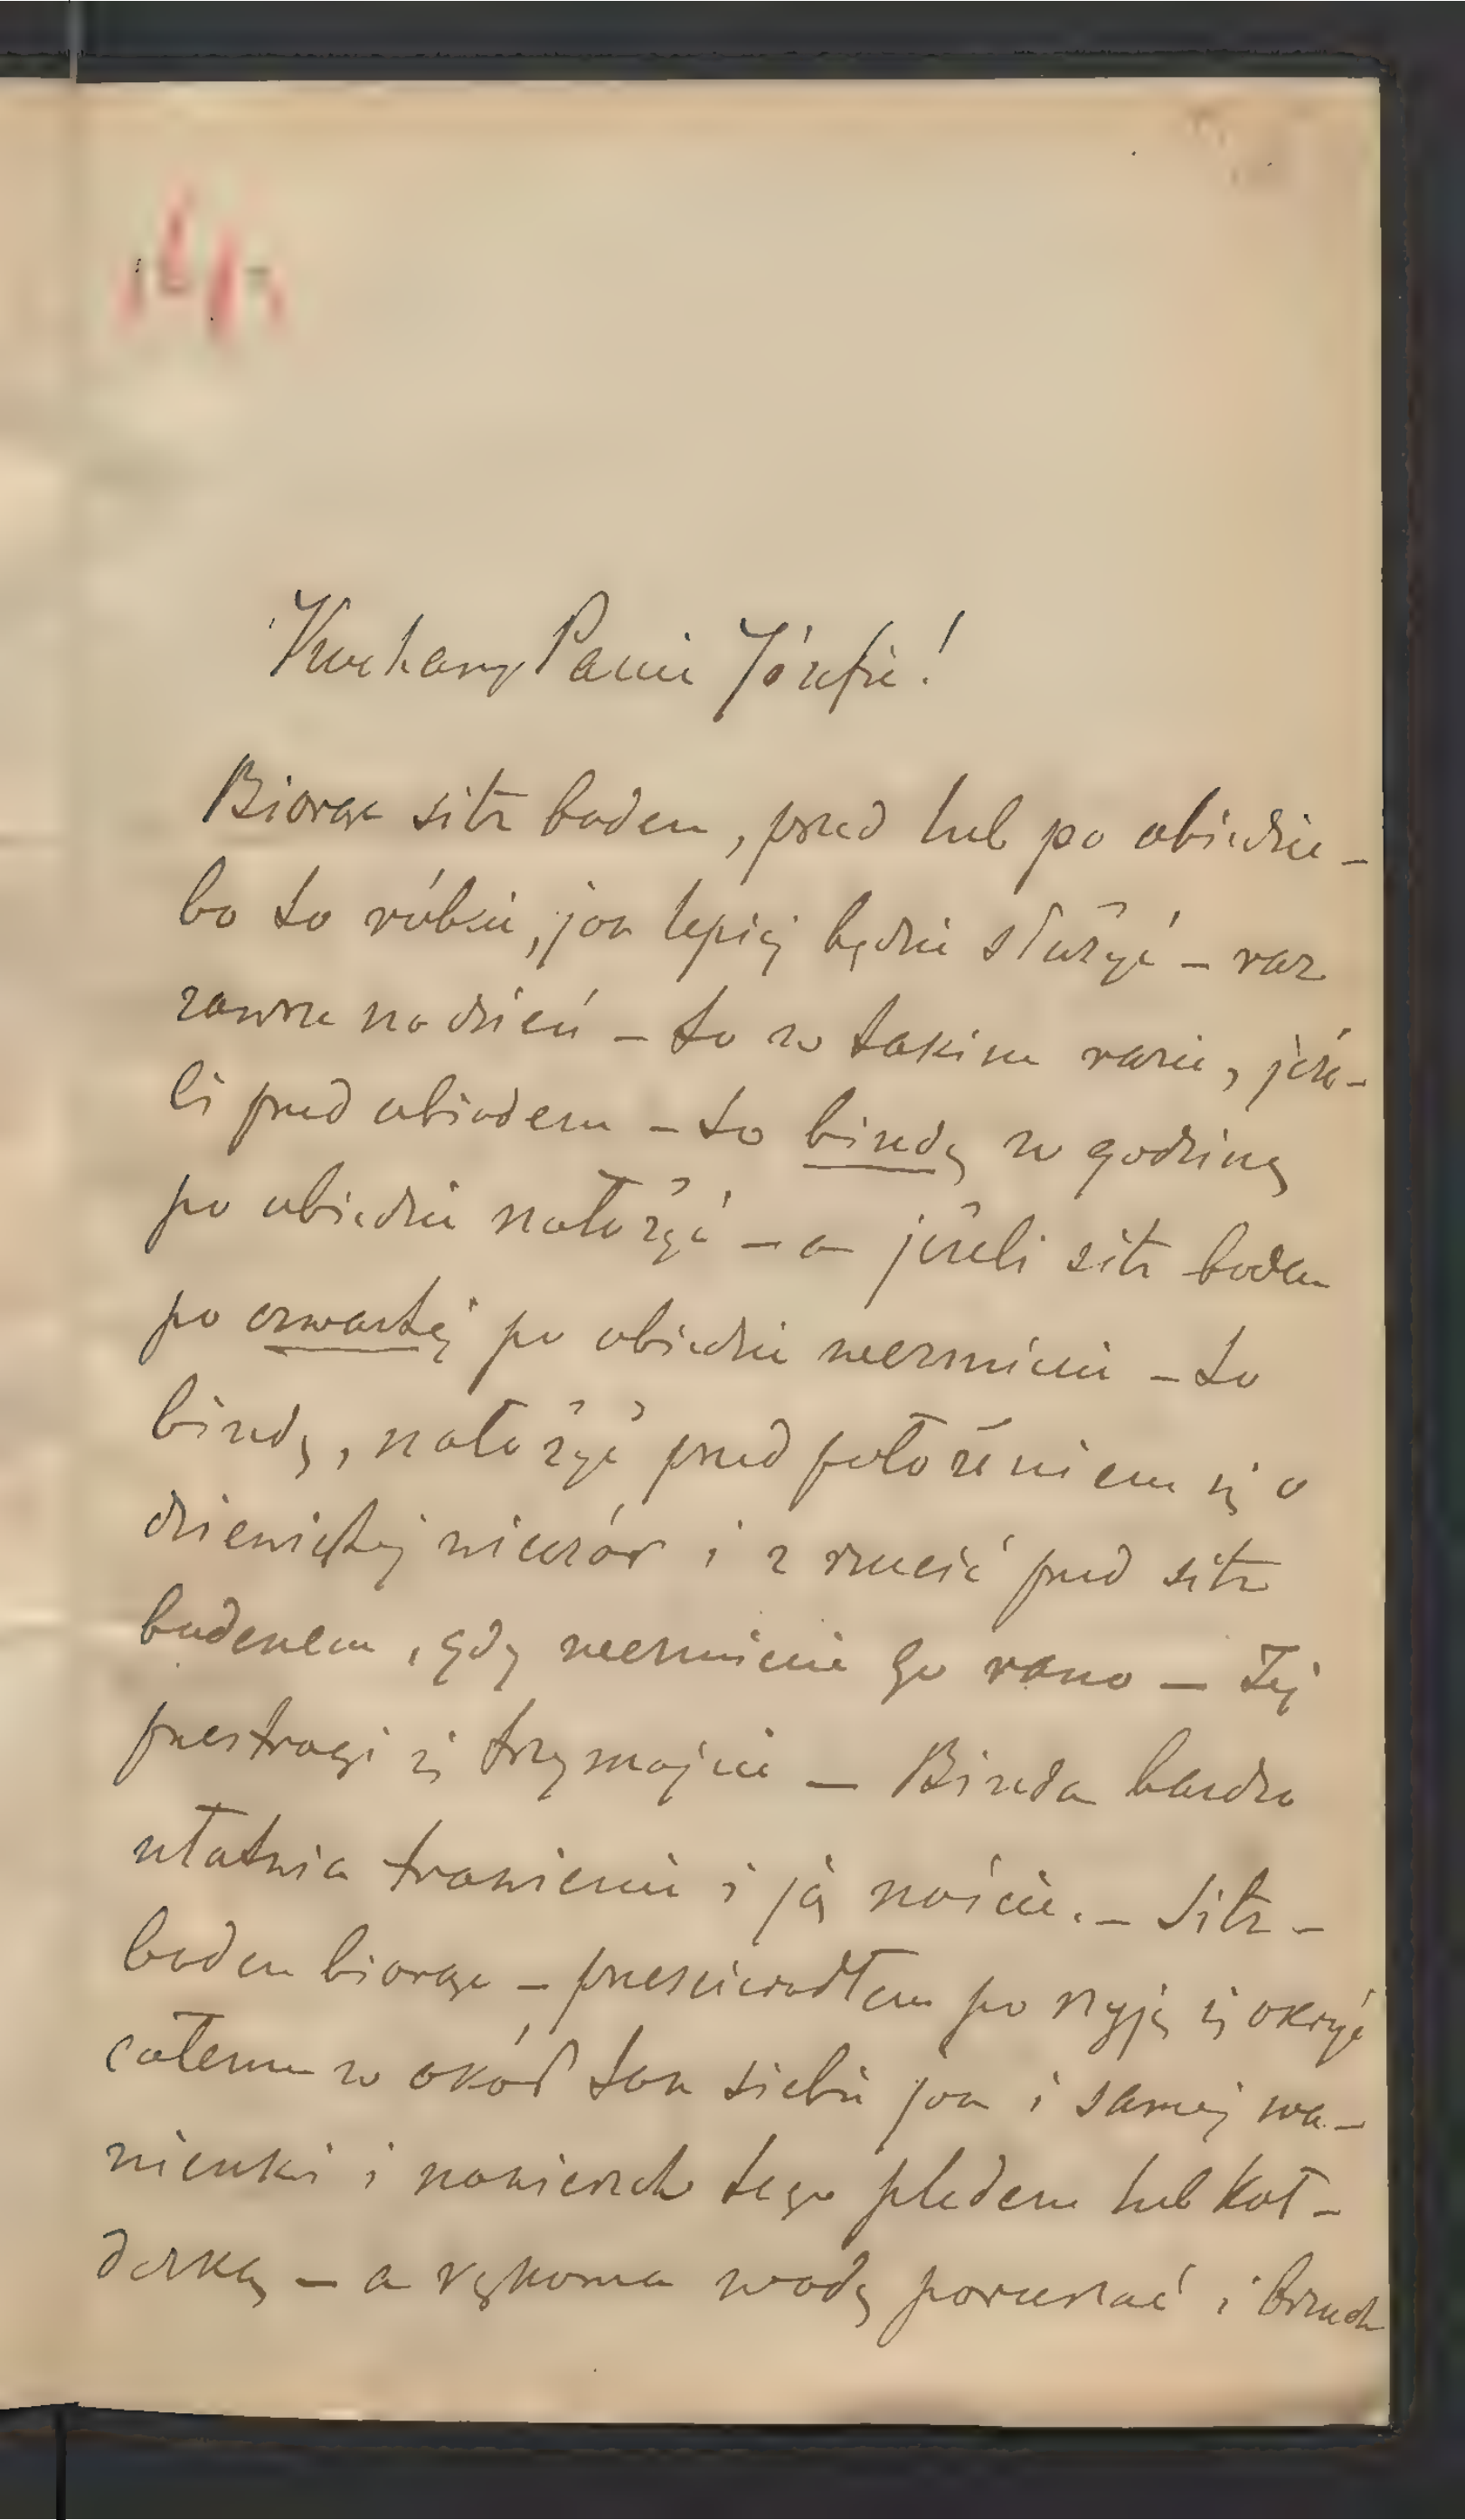 Kochany Panie Józefie!
Biorąc sitz baden, przed lub po obiedzie –
bo to róbcie, jak lepiej będzie służyć – raz
zawsze na dzień – to w takim razie, jeże-
li przed obiadem – to bindę w godzinę
po obiedzie nałożyć – a jeżeli sitz baden
po czwartej po obiedzie weźmiecie – to
bindę, nałożyć przed położeniem się o
dziewiątej wieczór i zrzucić przed sitz
badenem, gdy weźmiecie go rano – Tej
przestrogi się trzymajcie – Binda bardzo
ułatwia trawienie i ją noście. – Sitz –
baden biorąc – prześcieradłem po szyję się okryć
całem w okół tak siebie jak i samej wa-
nienki i nawierzch tego pledem lub koł-
derką – a rękoma wodę poruszać i brzuch